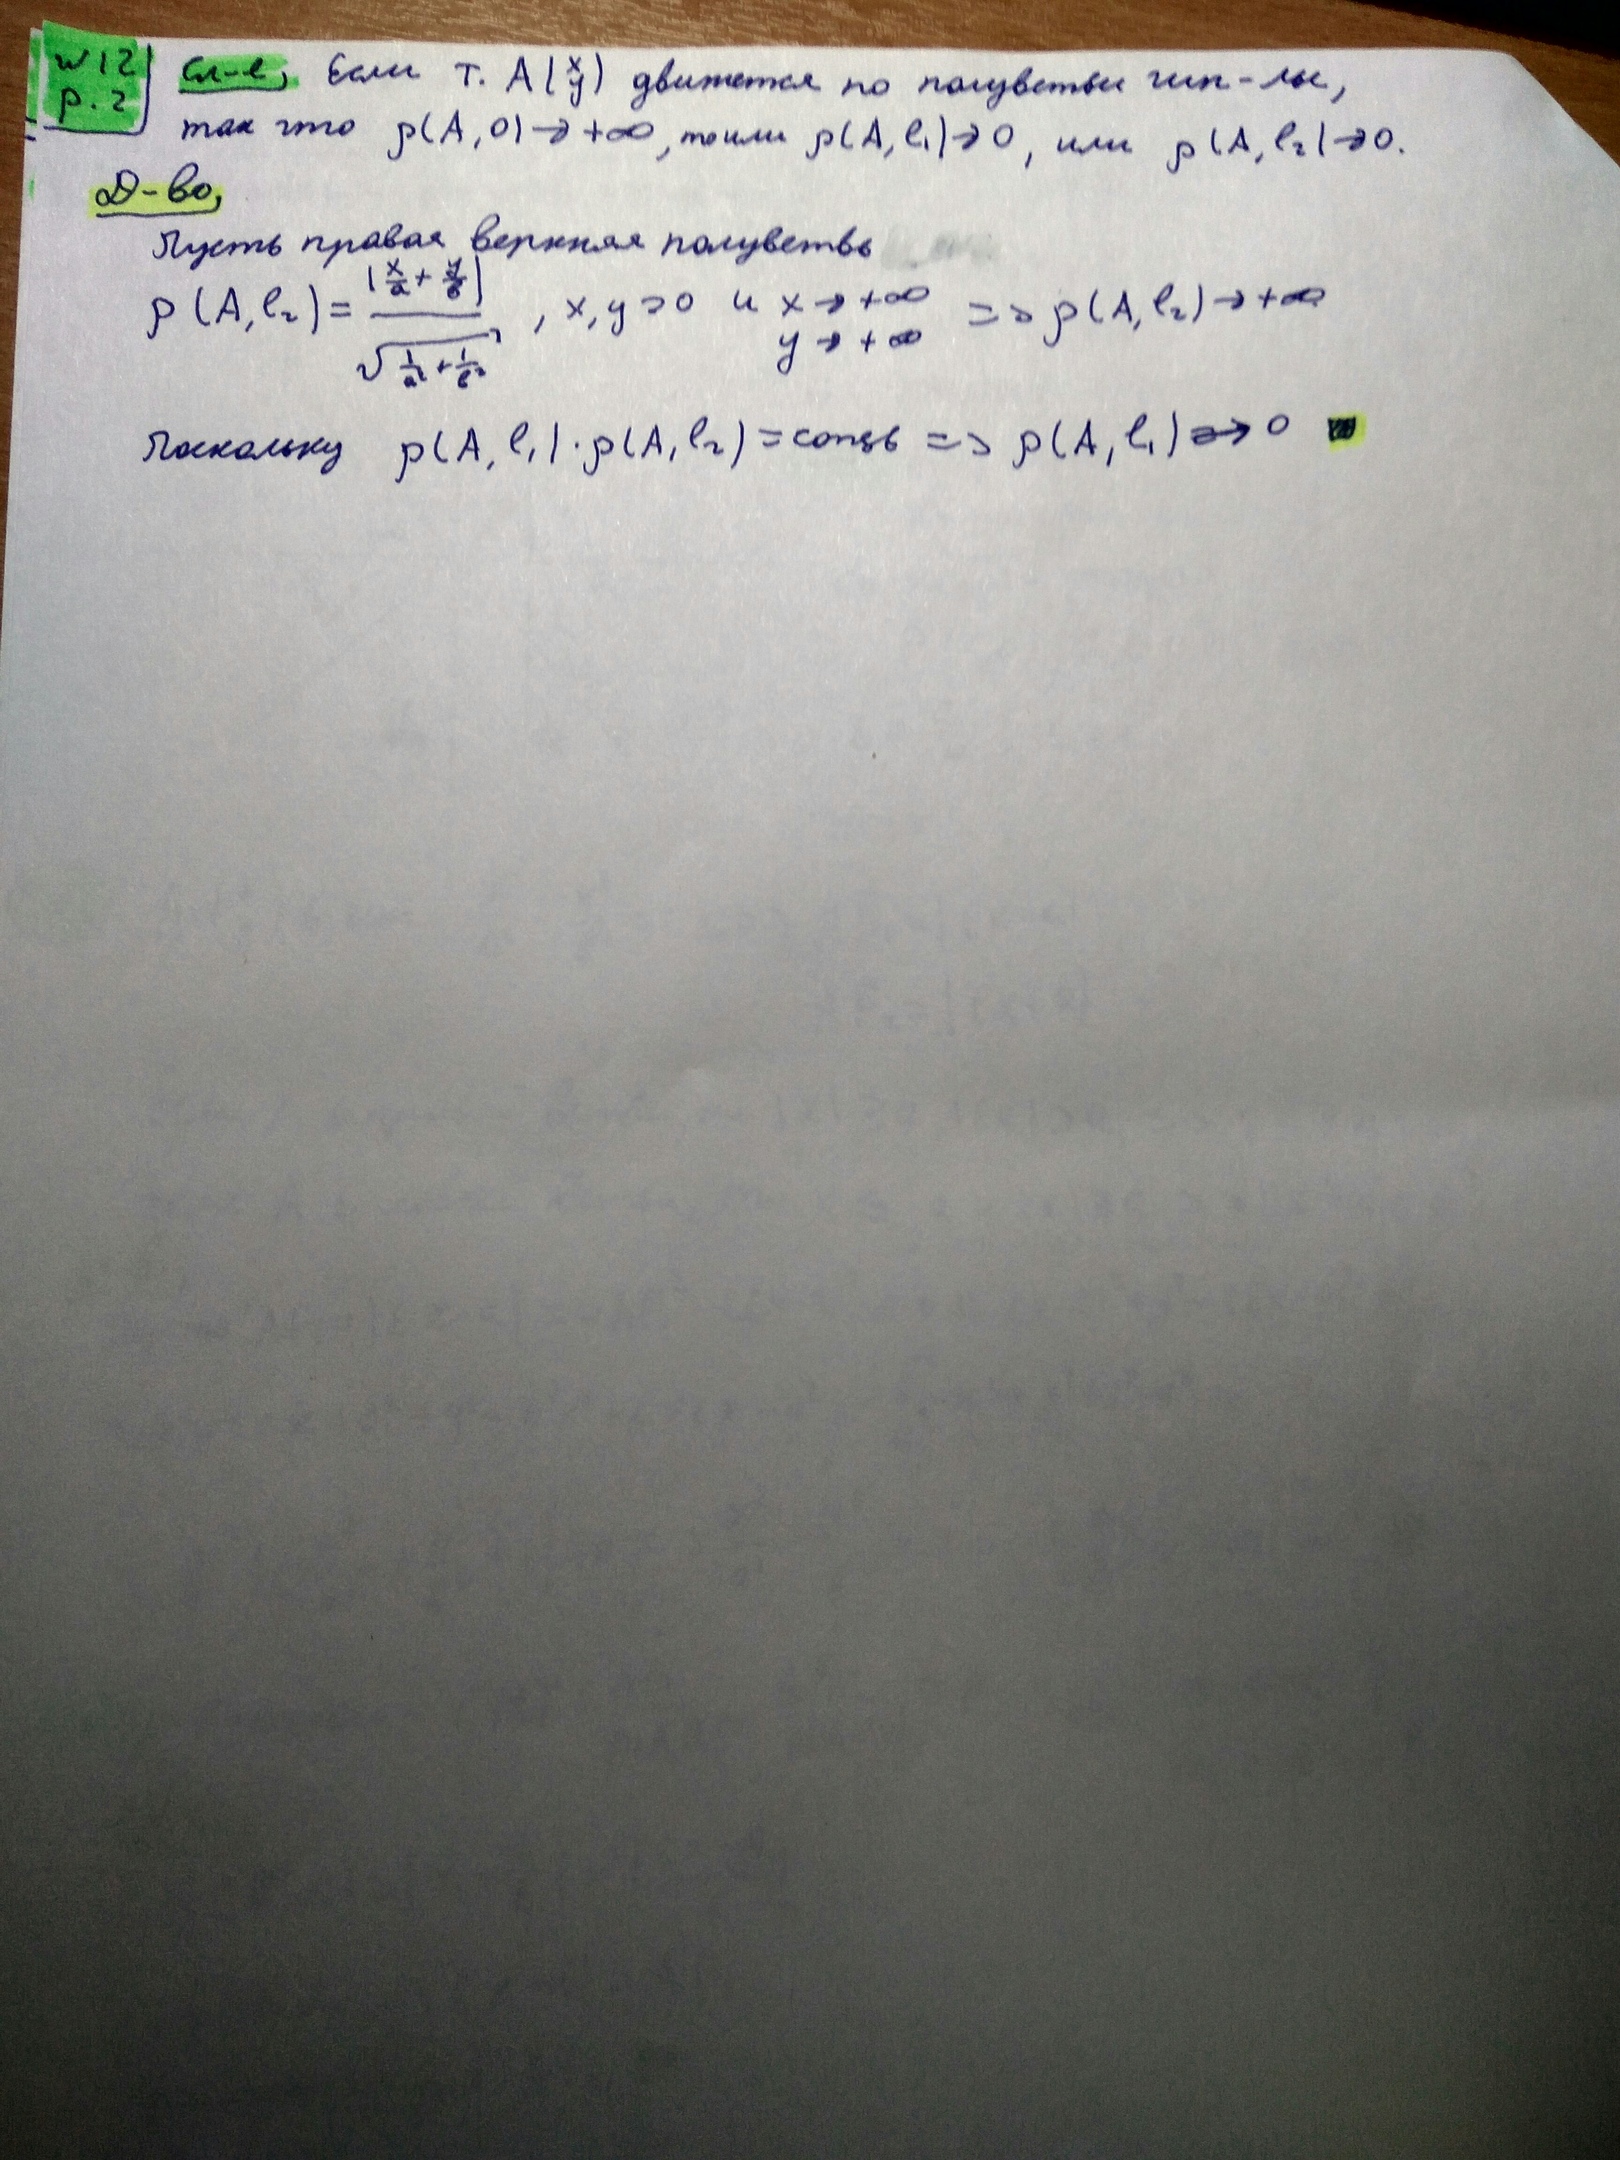 W12
p. 2
Сл-е, Если т. A(x y) движется по полуветви гип-лы,
так что ρ(A, O) → +∞, то или ρ(A, l₁) → 0, или ρ(A, l₂) → 0.
Д-во,
Пусть правая верхняя полуветвь
ρ(A, l₂) = |x/a + y/b| / √(1/a² + 1/b²), x, y > 0 и x → +∞ y → +∞ => ρ(A, l₂) → +∞
Поскольку ρ(A, l₁) · ρ(A, l₂) = const => ρ(A, l₁) → 0